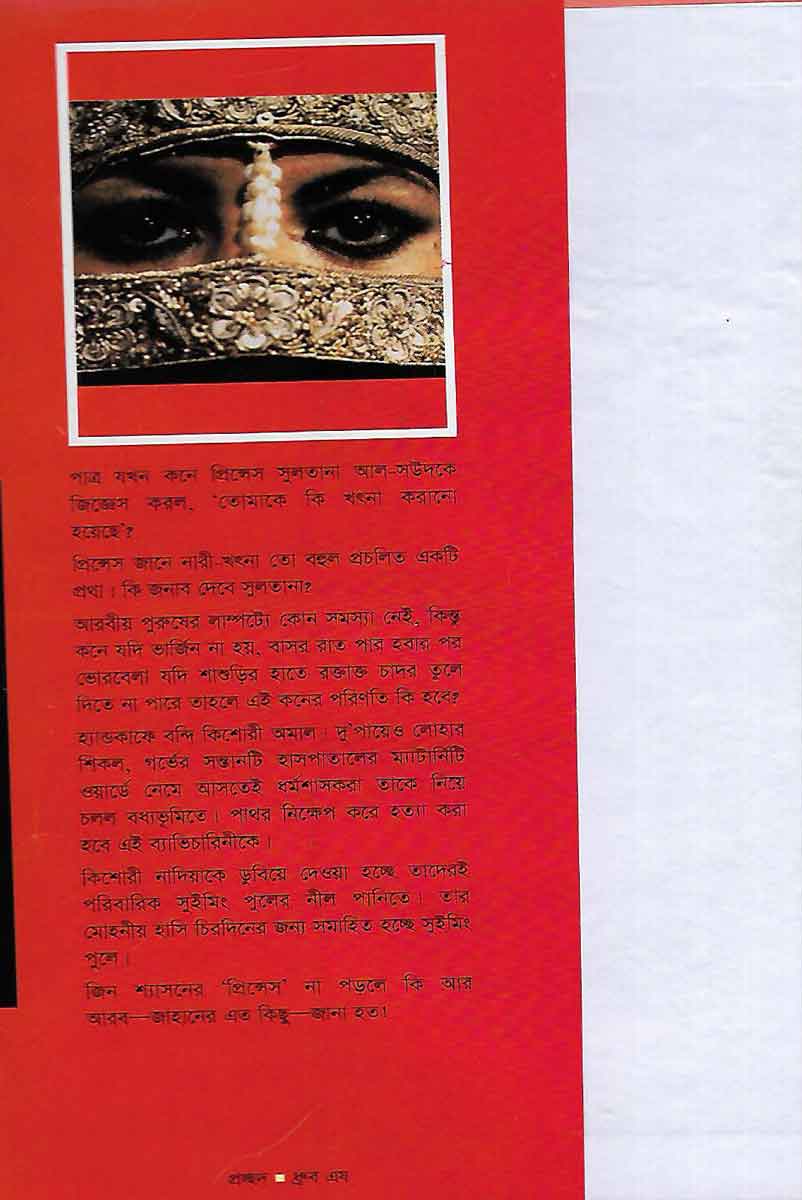 পাত্র যখন কনে প্রিন্সেস সুলতানা আল-সউদকে
জিজ্ঞেস করল, 'তোমাকে কি খৎনা করানো
হয়েছে'?
প্রিন্সেস জানে নারী-খৎনা তো বহুল প্রচলিত একটি
প্রথা। কি জবাব দেবে সুলতানা?
আরবীয় পুরুষের লাম্পট্যে কোন সমস্যা নেই, কিন্তু
কনে যদি ভার্জিন না হয়, বাসর রাত পার হবার পর
ভোরবেলা যদি শাশুড়ির হাতে রক্তাক্ত চাদর তুলে
দিতে না পারে তাহলে এই কনের পরিণতি কি হবে?
হ্যান্ডকাফে বন্দি কিশোরী অমাল। দু'পায়েও লোহার
শিকল, গর্ভের সন্তানটি হাসপাতালের ম্যাটার্নিটি
ওয়ার্ডে নেমে আসতেই ধর্মশাসকরা তাকে নিয়ে
চলল বধ্যভূমিতে। পাথর নিক্ষেপ করে হত্যা করা
হবে এই ব্যাভিচারিনীকে।
কিশোরী নাদিয়াকে ডুবিয়ে দেওয়া হচ্ছে তাদেরই
পরিবারিক সুইমিং পুলের নীল পানিতে। তার
মোহনীয় হাসি চিরদিনের জন্য সমাহিত হচ্ছে সুইমিং
পুলে।
জিন শ্যাসনের 'প্রিন্সেস' না পড়লে কি আর
আরব—জাহানের এত কিছু—জানা হত!
প্রচ্ছদ ▪ ধ্রুব এষ